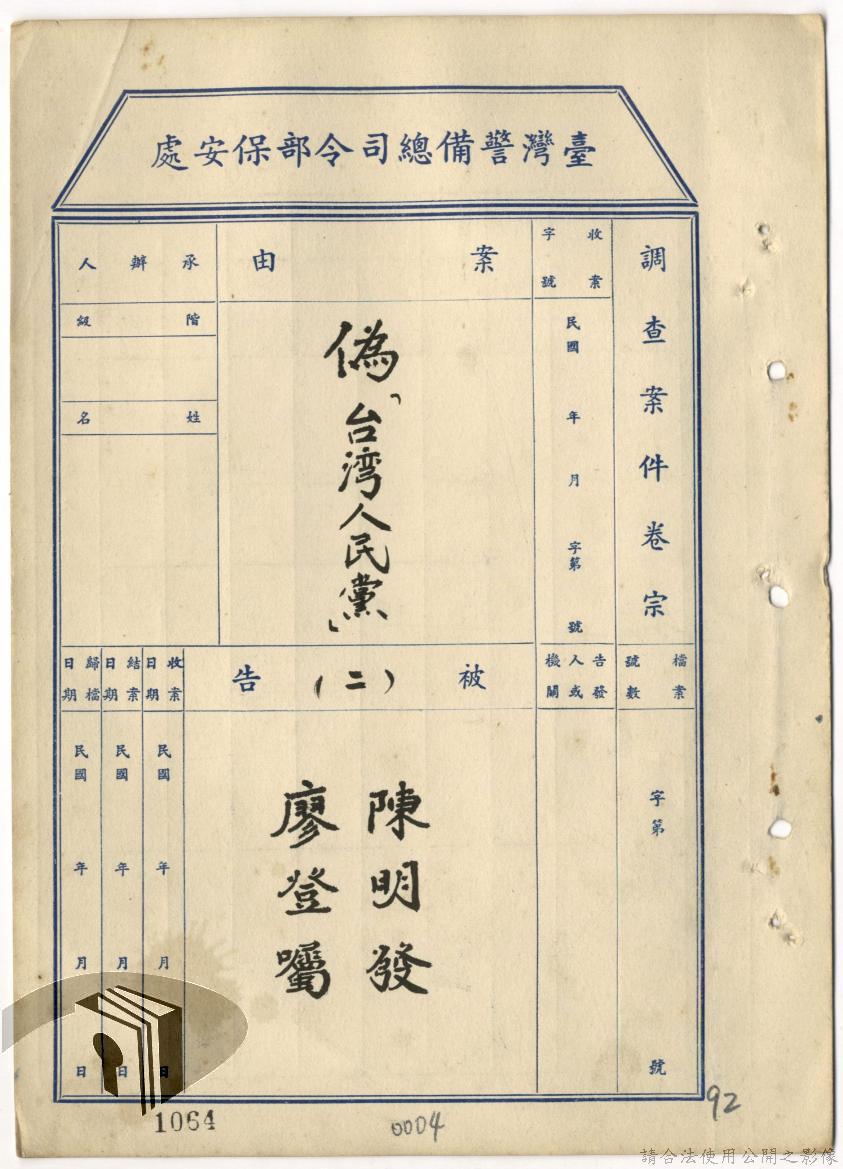 臺灣警備總司令部保安處
調查案件卷宗
檔案號數
字第 號
收案字號
民國 年 月 字第 號
告發人或機關
案由
偽「台湾人民黨」
被(二)告
陳明發
廖登囑
承辦人
階級
姓名
收案日期
民國 年 月 日
結案日期
民國 年 月 日
歸檔日期
民國 年 月 日
1064
0004
92
請合法使用公開之影像